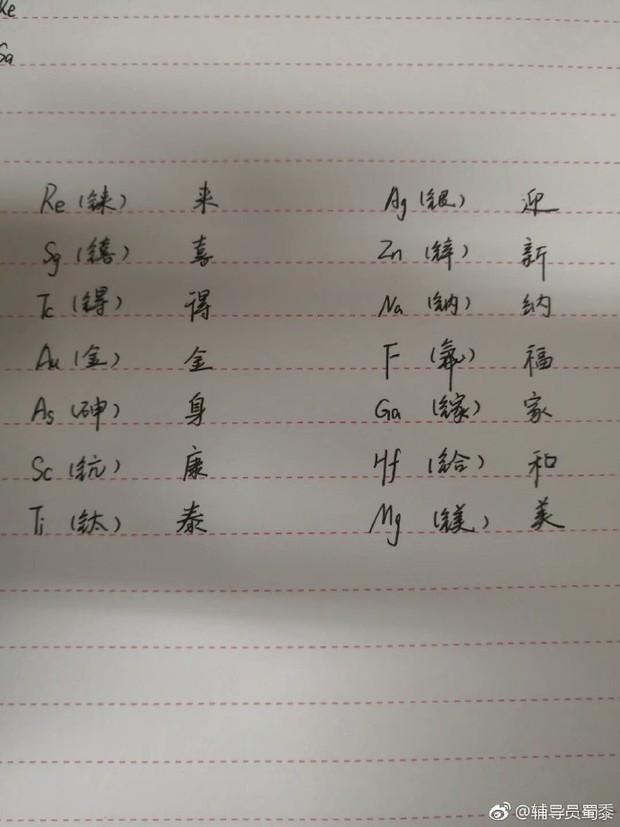 Re（铼） 来 Ag（银） 迎
Sg（𨭎） 喜 Zn（锌） 新
Tc（锝） 得 Na（钠） 纳
Au（金） 金 F（氟） 福
As（砷） 身 Ga（镓） 家
Sc（钪） 康 Hf（铪） 和
Ti（钛） 泰 Mg（镁） 美
@辅导员蜀黍